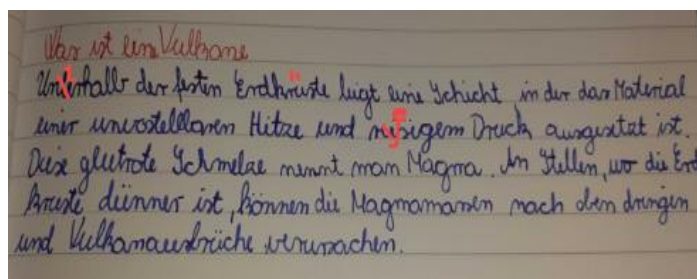 Was ist eine Vulkane
Unterhalb der festen Erdkrüste liegt eine Schicht, in der das Material
einer unvorstellbaren Hitze und riesigem Druck ausgesetzt ist.
Diese glutrote Schmelze nennt man Magma. An Stellen, wo die Erd
kruste dünner ist, können die Magmamassen nach oben dringen
und Vulkanausbrüche verursachen.